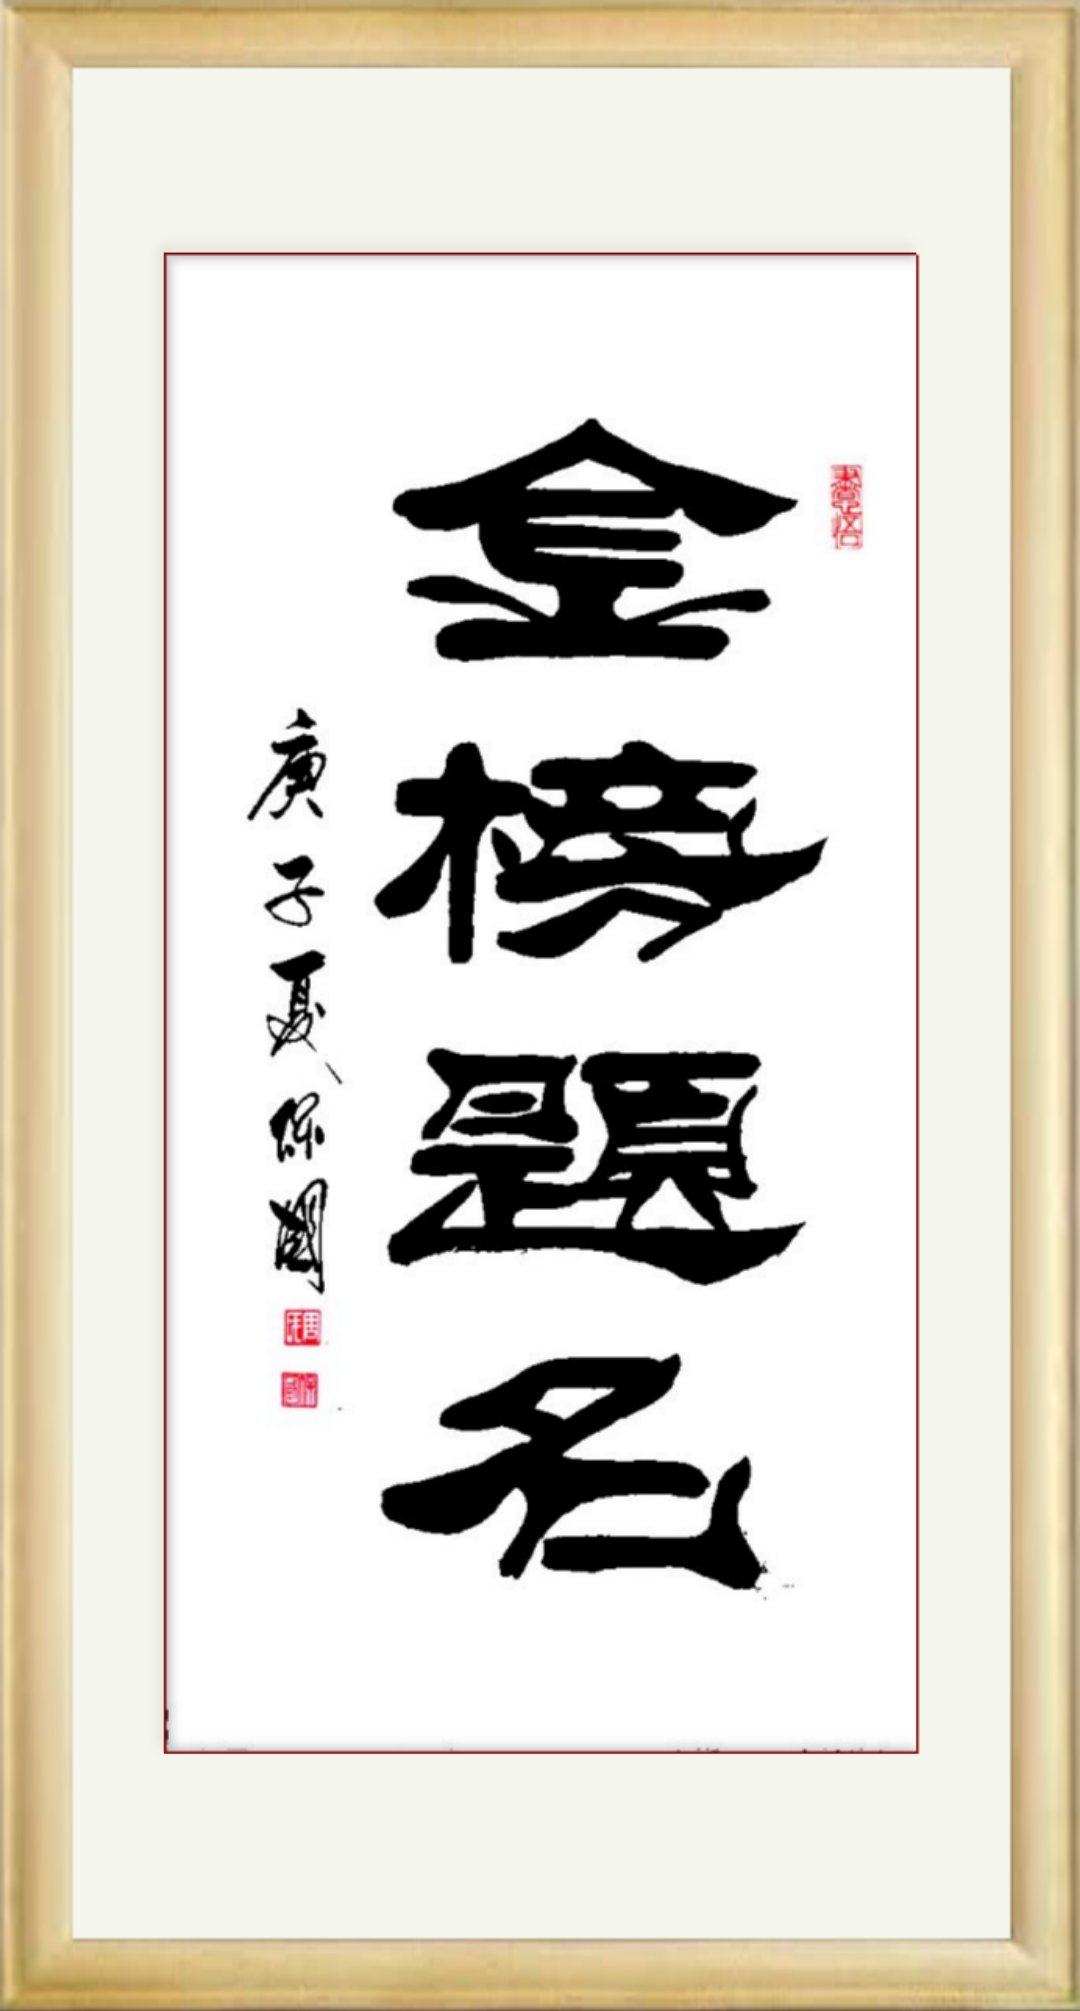 金榜題名
庚子夏保國